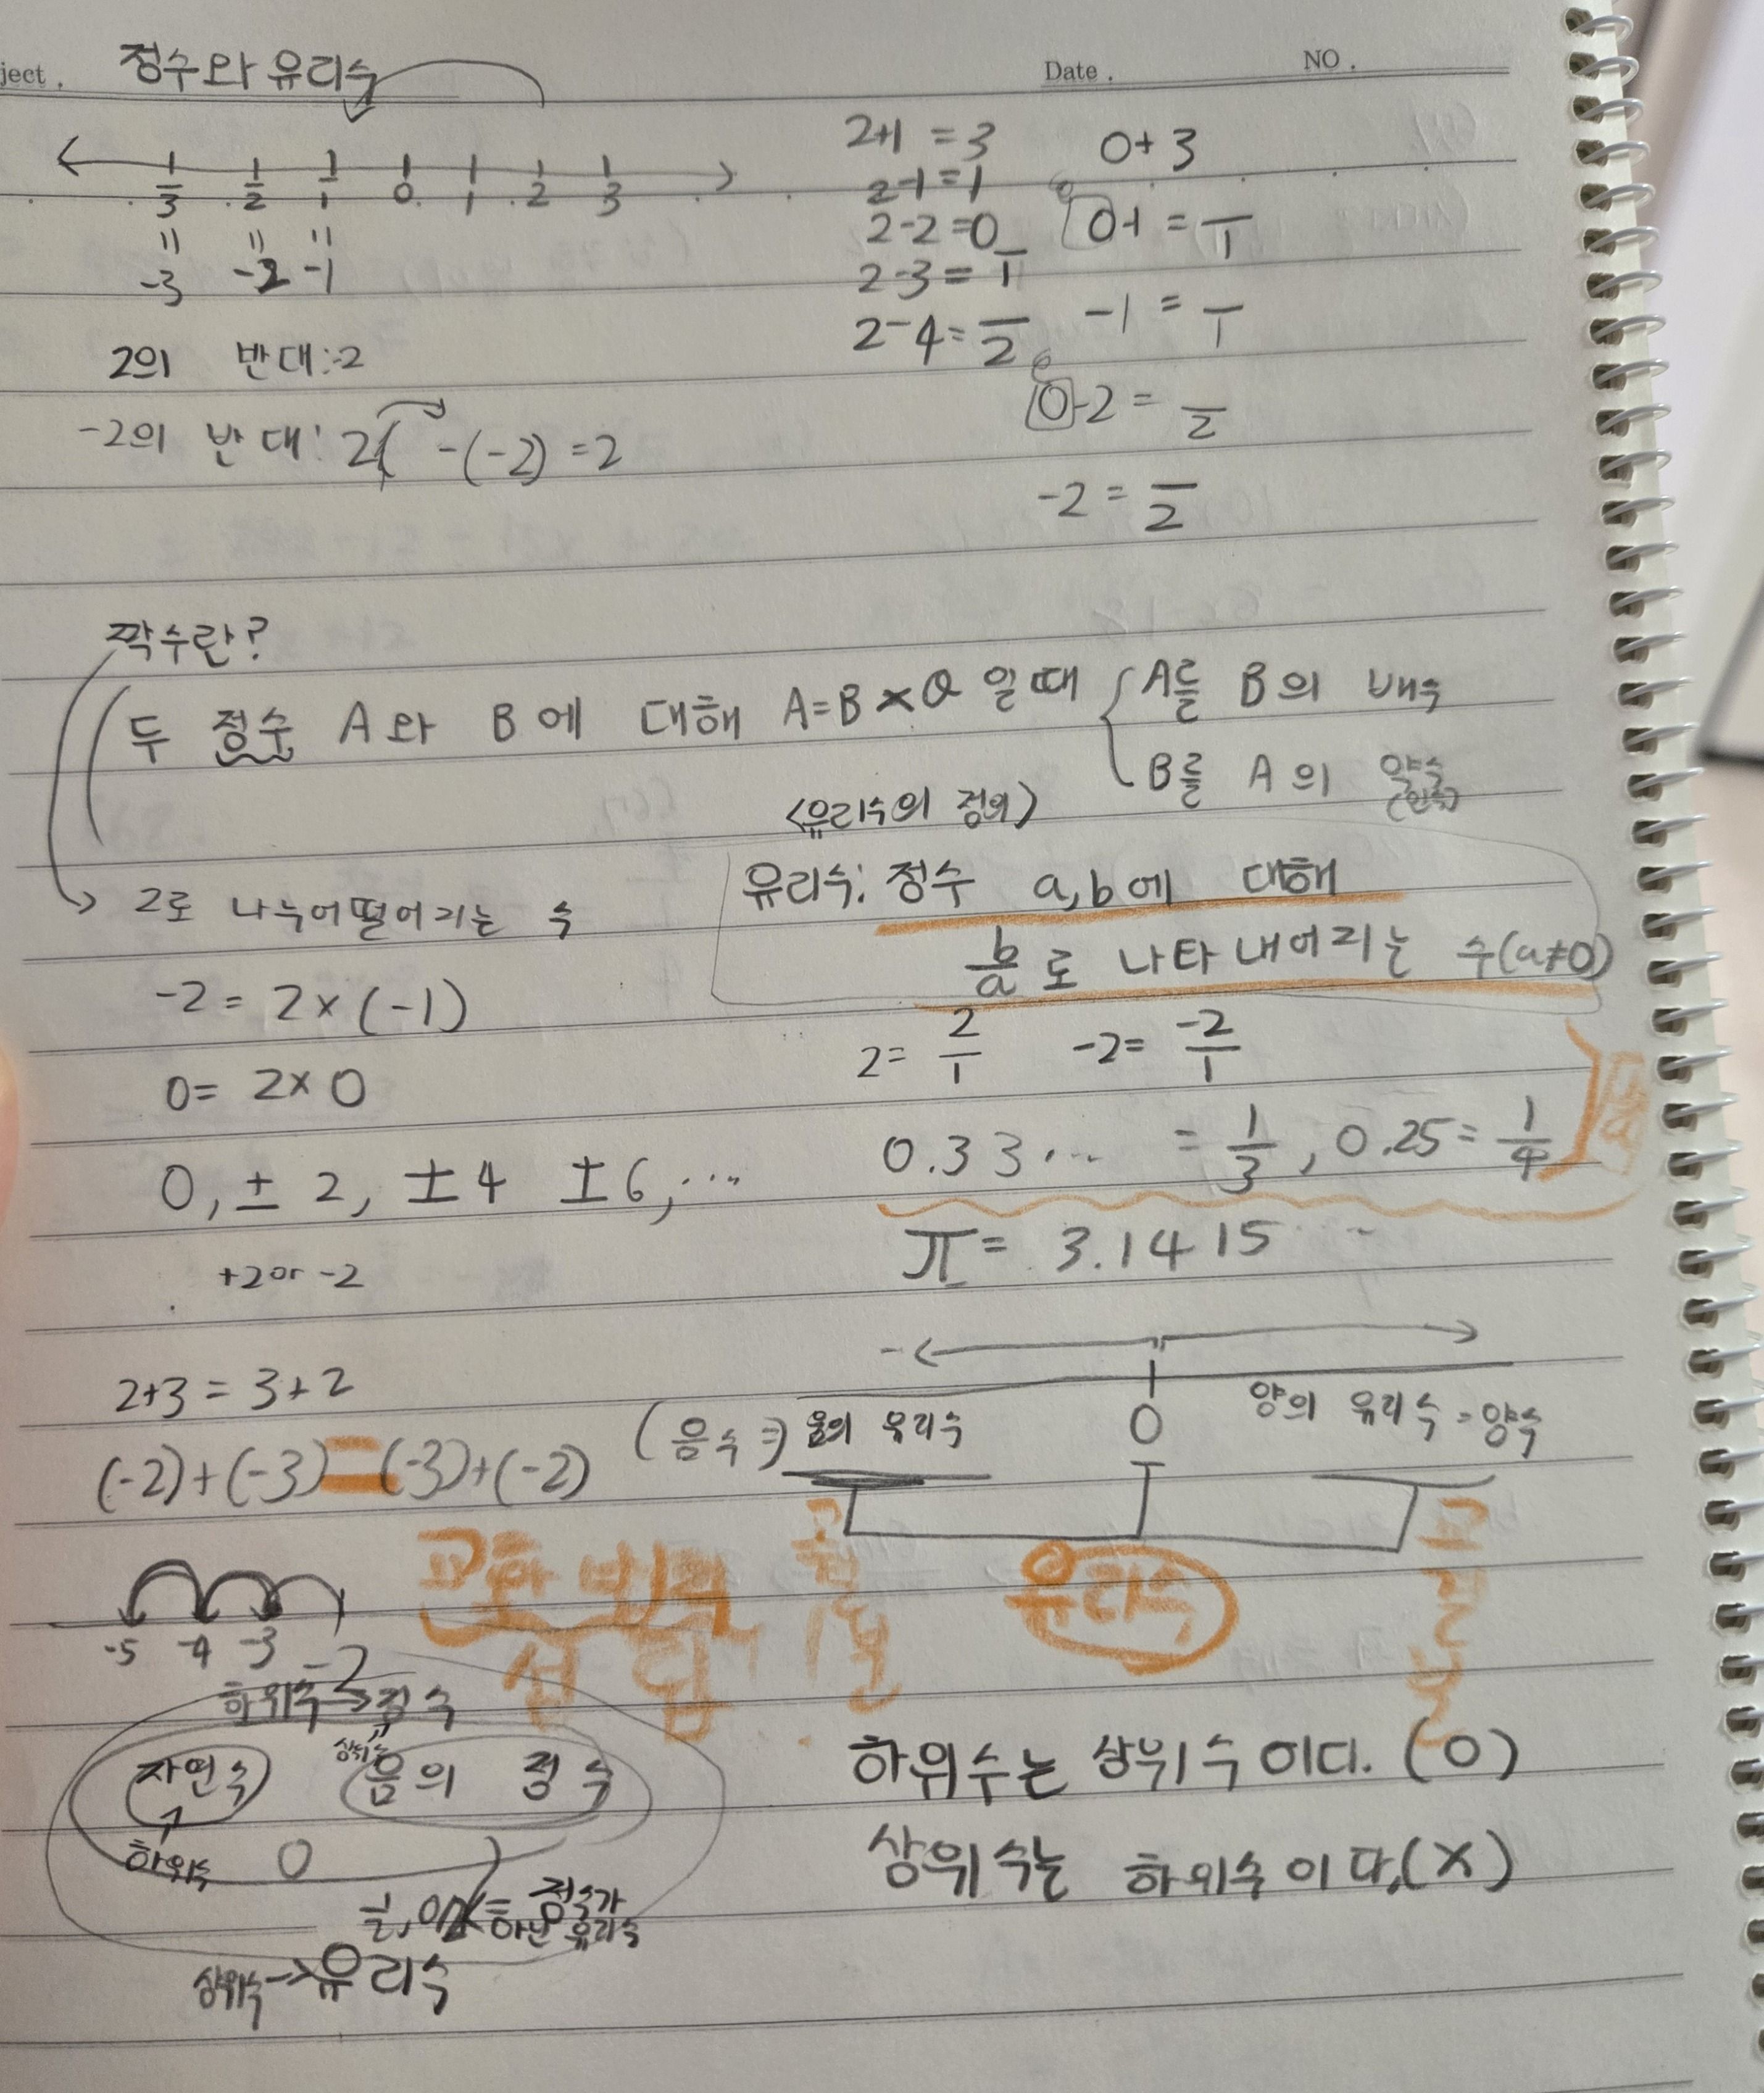 ject .
정수와 유리수
Date .
NO .
3̅ 2̅ 1̅ 0 1 2 3
= = =
-3 -2 -1
2의 반대:-2
-2의 반대: 2( -(-2) =2
2+1 =3
2-1=1
2-2=0
2-3= 1̅
2-4= 2̅
0+3
0-1 = 1̅
-1 = 1̅
0-2 = 2̅
-2 = 2̅
짝수란?
두 정수 A와 B에 대해 A=B×Q 일때 A를 B의 배수
B를 A의 약수
2로 나누어떨어지는 수
-2 = 2×(-1)
0= 2×0
0, ± 2, ±4 ±6, ...
+2 or -2
<유리수의 정의>
유리수: 정수 a,b에 대해
b/a 로 나타내어지는 수(a≠0)
2= 2/1 -2= -2/1
0.33... = 1/3 , 0.25= 1/4
π= 3.1415 ...
2+3 = 3+2
(-2)+(-3)=(-3)+(-2)
교환법칙
성립
-5 -4 -3 -2
-
0
(음수=) 음의 유리수
양의 유리수=양수
유리수
하위수→정수
상위수
자연수
음의 정수
하위수
0
1/2, = 정수가
아닌 유리수
상위수→유리수
하위수는 상위수이다. (O)
상위수는 하위수이다.(X)